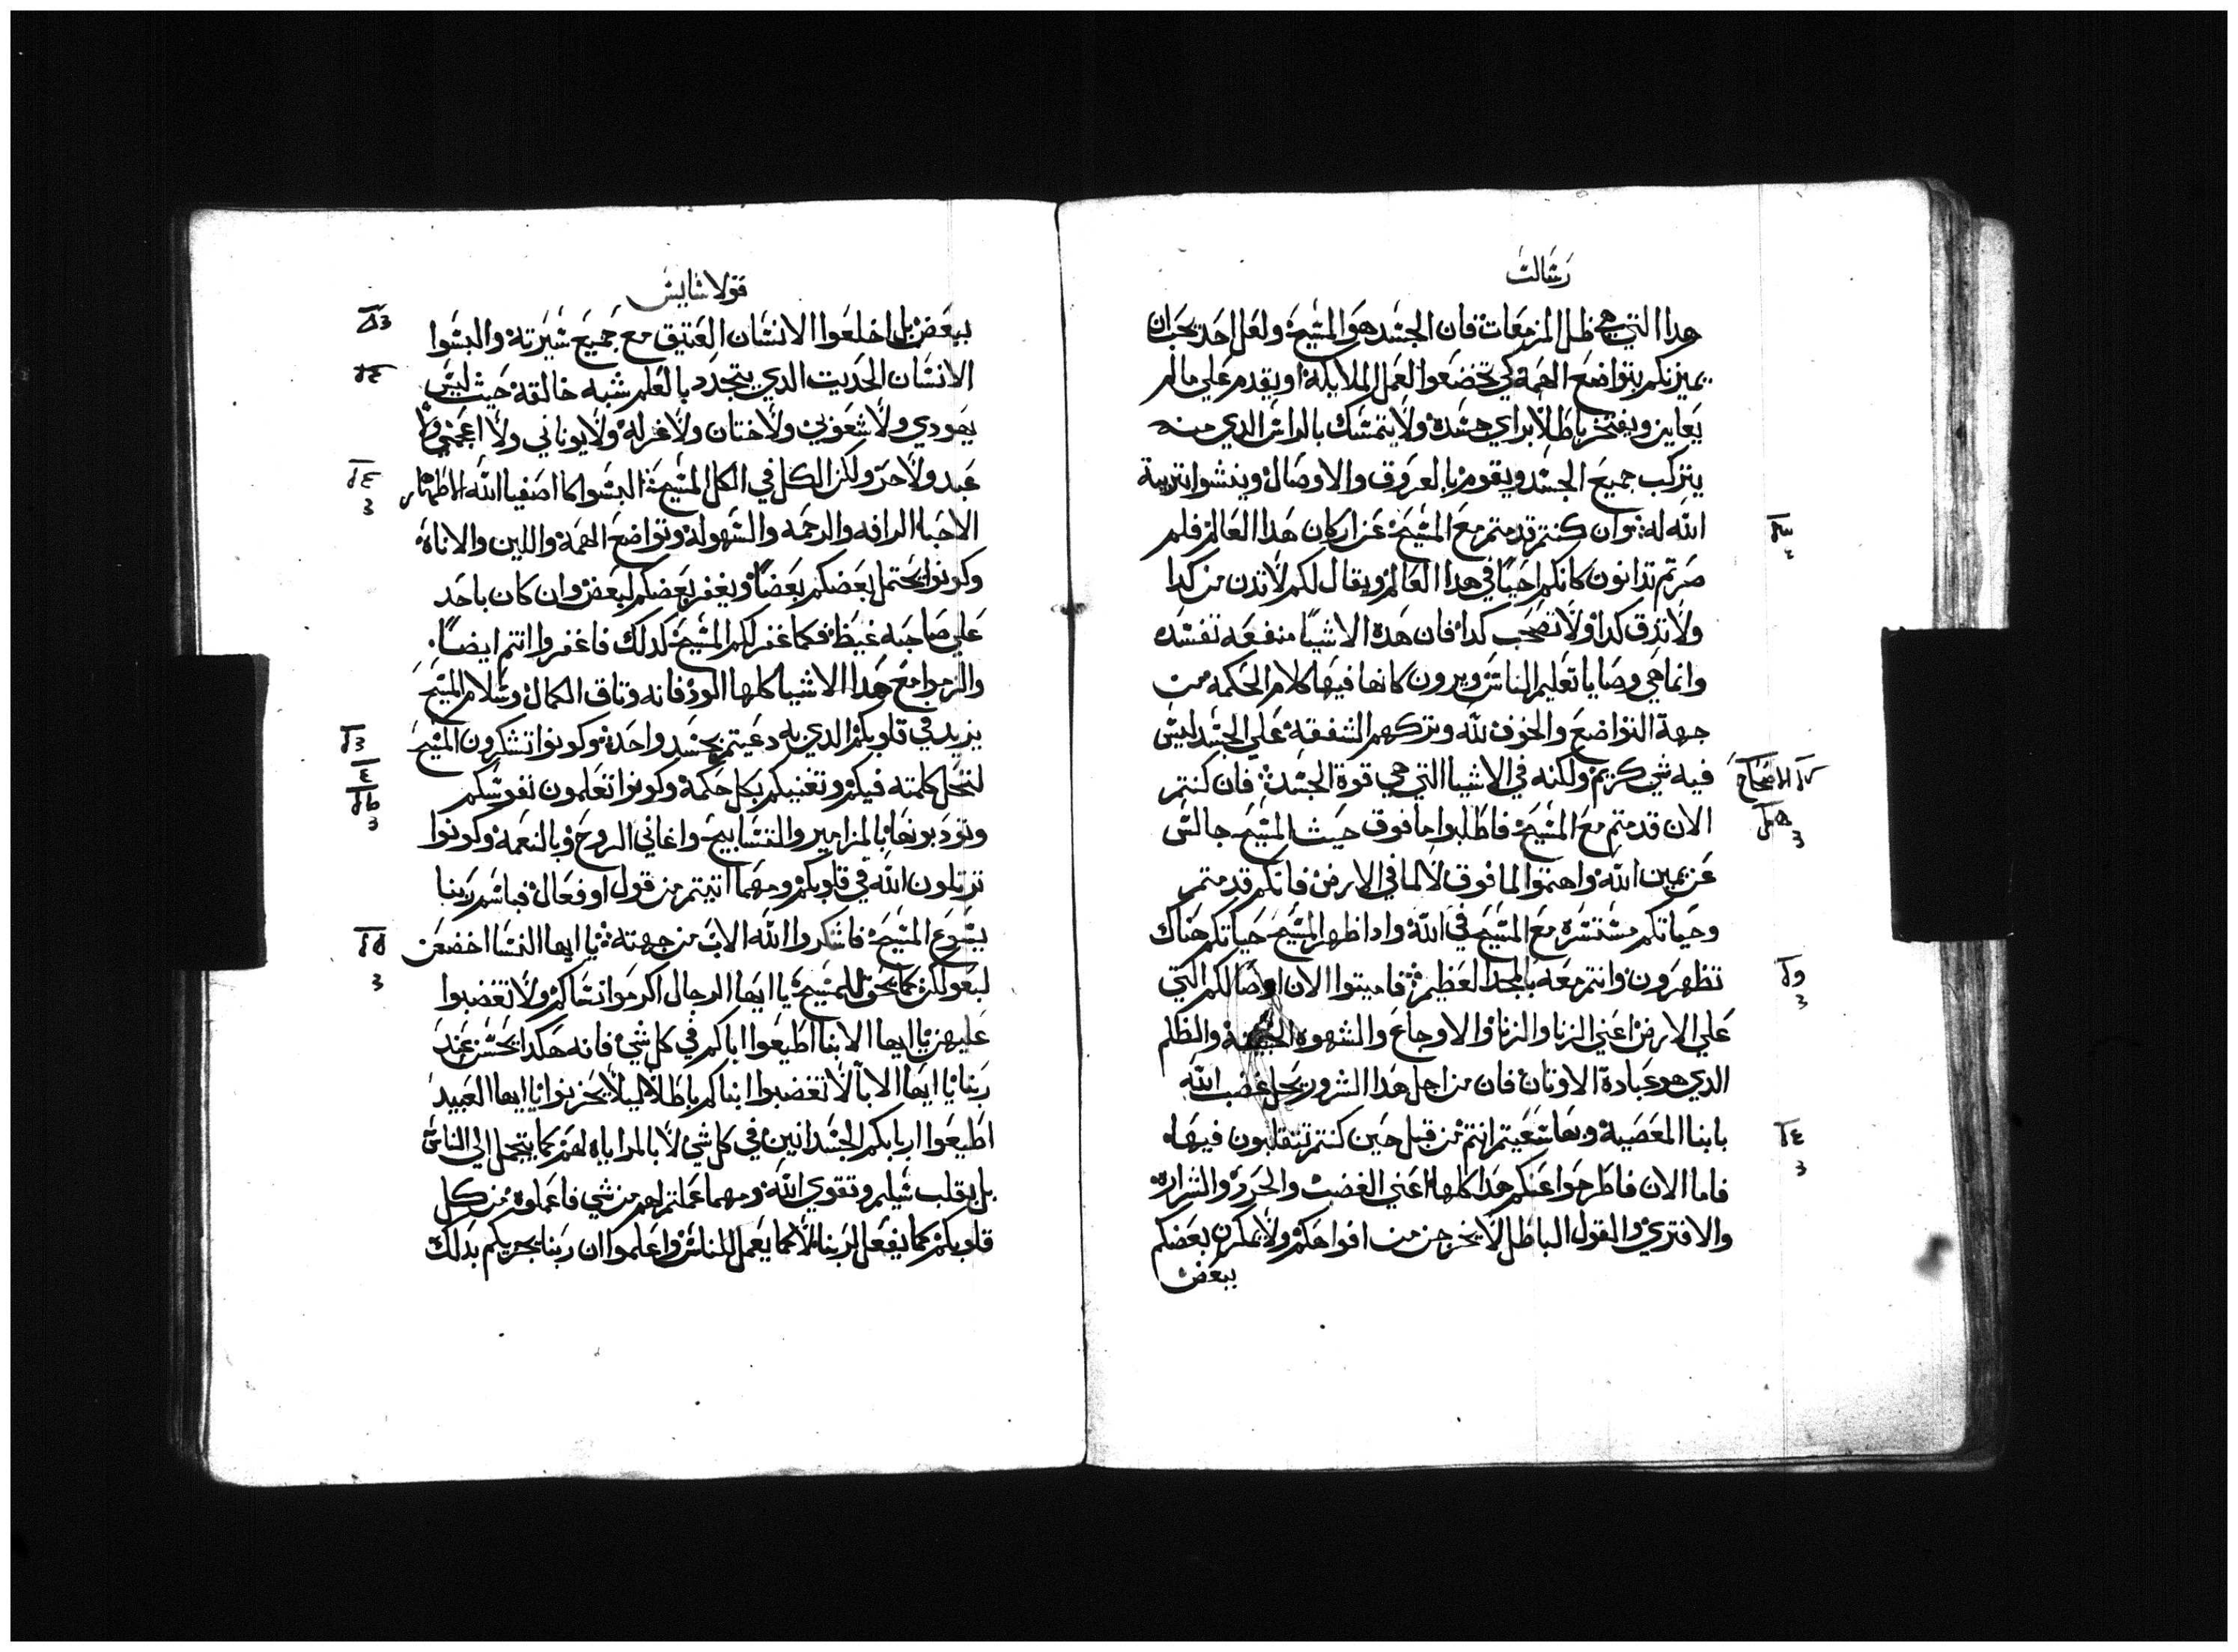 رسالت
هدا التي هي ظل المزمعات فان الجسد هو المسيح ولعل احد يحب ان
يميزنكم بتواضع الهمة كي تخضعوا لعمل الملايكة او يقدم علي مالم
يعاين ويفتخر باطلا براي جسده ولا يتمسك بالراس الدي منه
يتركب جميع الجسد ويقوم بالعروق والاوصال وينشوا تربية
الله له وان كنتم قد متم مع المسيح عن اركان هدا العالم فلم
صرتم تدانون كانكم احيا في هدا العالم ويقال لكم لا تدن من كدا
ولا تدق كدا ولا تصحب كدا فان هده الاشيا منفعه تفسده
وانما هي وصايا تعليم الناس ويرون كانها فيها كلام الحكمه من
جهة التواضع والخوف لله وتركهم الشفقه علي الجسد ليس
فيه شي كريم ولكنه في الاشيا التي هي قوة الجسد فان كنتم
الاصحاح
الان قد متم مع المسيح فاطلبوا ما فوق حيث المسيح جالس
عن يمين الله واهتموا لما فوق لا لما في الارض فانكم قد متم
وحياتكم مستسره مع المسيح في الله وادا ظهر المسيح حياتكم هناك
تظهرون وانتم معه بالمجد العظيم فاميتوا الان اوصالكم التي
علي الارض اعني الزنا والزنا والاوجاع والشهوه والظلم
الدي هو عبادة الاوتان فان من اجل هدا الشرور يحل غضب الله
بابنا المعصية وبها سعيتم انتم من قبل حين كنتم تتقلبون فيها
فاما الان فاطرحوا عنكم هدا كلها اعني الغضب والحرد والشراره
والافتري والقول الباطل لا يخرجن من افواهكم ولا يمكرن بعضكم
ببعض
قولاسايس
ببعض بل اخلعوا الانسان العتيق مع جميع سيرته والبسوا
الانسان الحديت الدي يتجدد بالعلم شبه خالقه حيث ليس
يهودي ولا شعوبي ولا ختان ولا غرلة ولا يوناني ولا اعجمي ولا
عبد ولا حر ولكن الكل في الكل المسيح البسوا كاصفيا الله الاطهار
الاحبا الرافه والرحمه والسهوله وتواضع الهمة واللين والاناة
وكونوا يحتمل بعضكم بعضا ويغفر بعضكم لبعض وان كان باحد
علي صاحبه غيظ فكما غفر لكم المسيح كدلك فاغفروا انتم ايضا
والزموا مع هدا الاشيا كلها الود فانه وتاق الكمال وسلام المسيح
يزيد في قلوبكم الدي له دعيتم بجسد واحد وكونوا تشكرون المسيح
لتحل كلمته فيكم وتغنيكم بكل حكمة وكونوا تعلمون نفوسكم
وتودبونها بالمزامير والتسابيح واغاني الروح وبالنعمة وكونوا
ترتلون الله في قلوبكم ومهما اتيتم من قول او فعال فباسم ربنا
يسوع المسيح فاشكروا الله الاب من جهته يا ايها النسا اخضعن
لبعولكن كما يحق للمسيح يا ايها الرجال اكرموا نساكم ولا تغضبوا
عليهن يا ايها الابنا اطيعوا اباكم في كل شي فانه هكدا يحسن عند
ربنا يا ايها الابا لا تغضبوا ابناكم باطلا ليلا يحزنوا يا ايها العبيد
اطيعوا اربابكم الجسدانين في كل شي لا بالمراياه لهم كما يتجمل الي الناس
بل بقلب سليم وتقوي الله ومهما عملتم لهم من شي فاعملوه من كل
قلوبكم كما يفعل لربنا لا كما يعمل للناس واعلموا ان ربنا يجزيكم بدلك